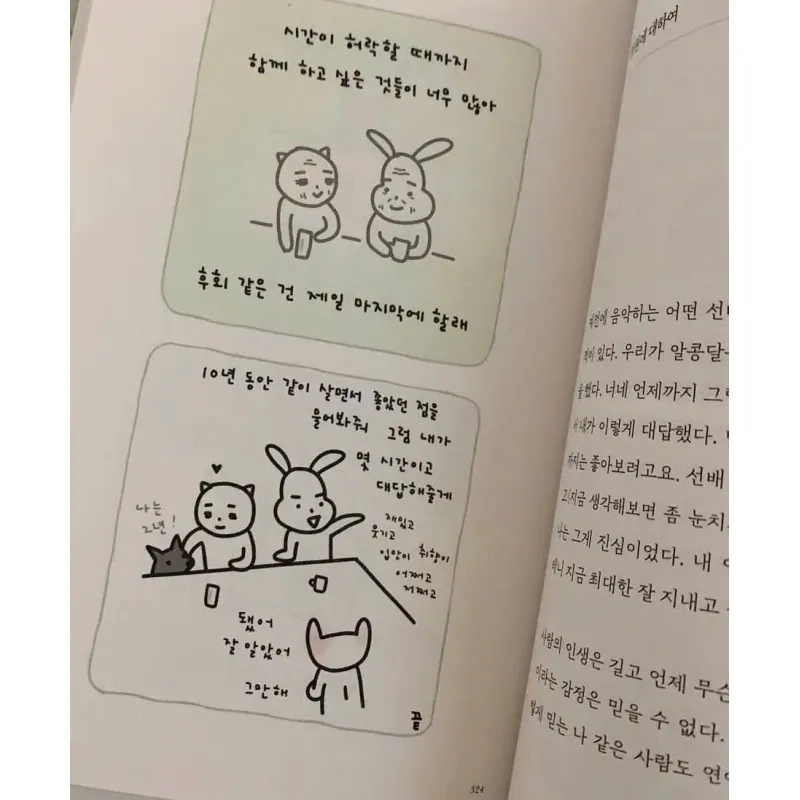 시간이 허락할 때까지
함께 하고 싶은 것들이 너무 많아
후회 같은 건 제일 마지막에 할래
10년 동안 같이 살면서 좋았던 점을
물어봐줘 그럼 내가
몇 시간이고
대답해줄게
나는
2년!
재밌고
웃기고
입맛이 취향이
어쩌고
저쩌고
됐어
잘 알았어
그만해
끝
324
대하여
음악하는 어떤
있다. 우리가
했다. 너네 언제까지
내가 이렇게 대답했다.
좋아보려고요. 선배
생각해보면 좀
그게 진심이었다. 내
지금 최대한 잘 지내고
사람의 인생은 길고 언제
이라는 감정은 믿을 수 없다.
믿는 나 같은 사람도